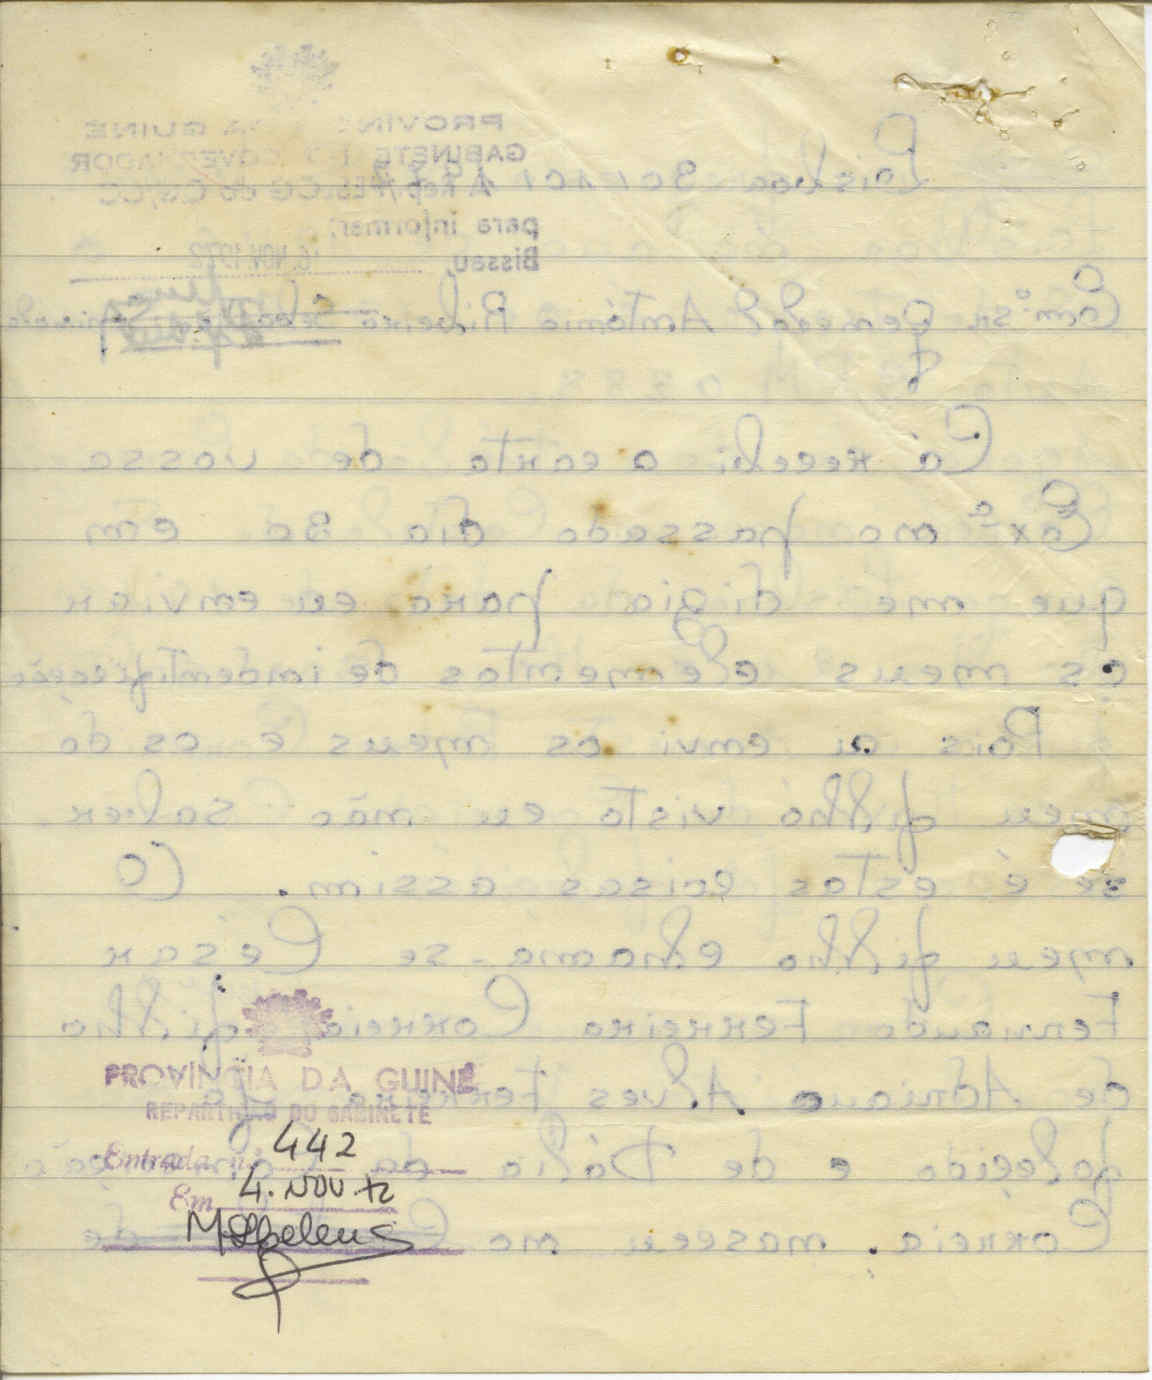 PROVINCIA DA GUINÉ
GABINETE DO GOVERNADOR
A Rep/
para informar:
Bissau, 16. NOV. 1972
Lisboa 30/10/
General António Ribeiro
Cá recebi a carta de vossa
Exª no passado dia 30 em
que me digia para eu enviar
os meus elementos de indentificação
Pois ai envi os meus e os do
meu filho visto eu não saber
se é estas coisas assim. O
meu filho chama-se César
Fernando Ferreira Correia filho
de Adriano Alves Ferreira
falecido e de Dália da
Correia. nasceu no de
PROVÍNCIA DA GUINÉ
REPARTIÇÃO DO GABINETE
Entrada n.º 442
Em 4. NOV. 72